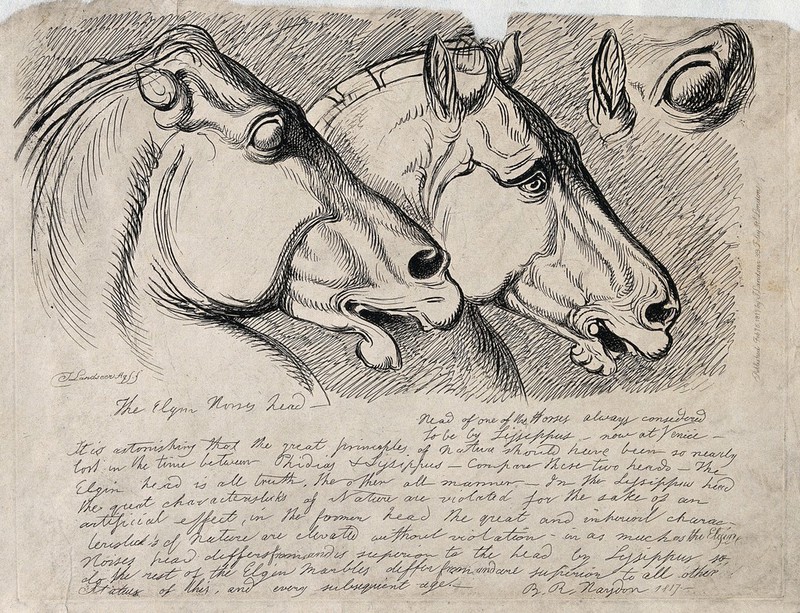 J. Landseer Aq f.
The Elgin Horses head —
Head of one of the Horses always considered
to be by Lysippus — now at Venice —
It is astonishing that the great principles of Nature should have been so nearly
lost in the time between Phidias & Lysippus — Compare these two heads — The
Elgin head is all truth, the other all manner — In the Lysippus head
the great characteristicks of Nature are violated for the sake of an
artificial effect, in the former head the great and inherent charac-
teristicks of Nature are elevated without violation — in as much as the Elgin
Horses head differs from and is superior to the head by Lysippus so
do the rest of the Elgin Marbles differ from and are superior to all other
Statues of this, and every subsequent age. —
B. R. Haydon 1817 —
Published Feb
London